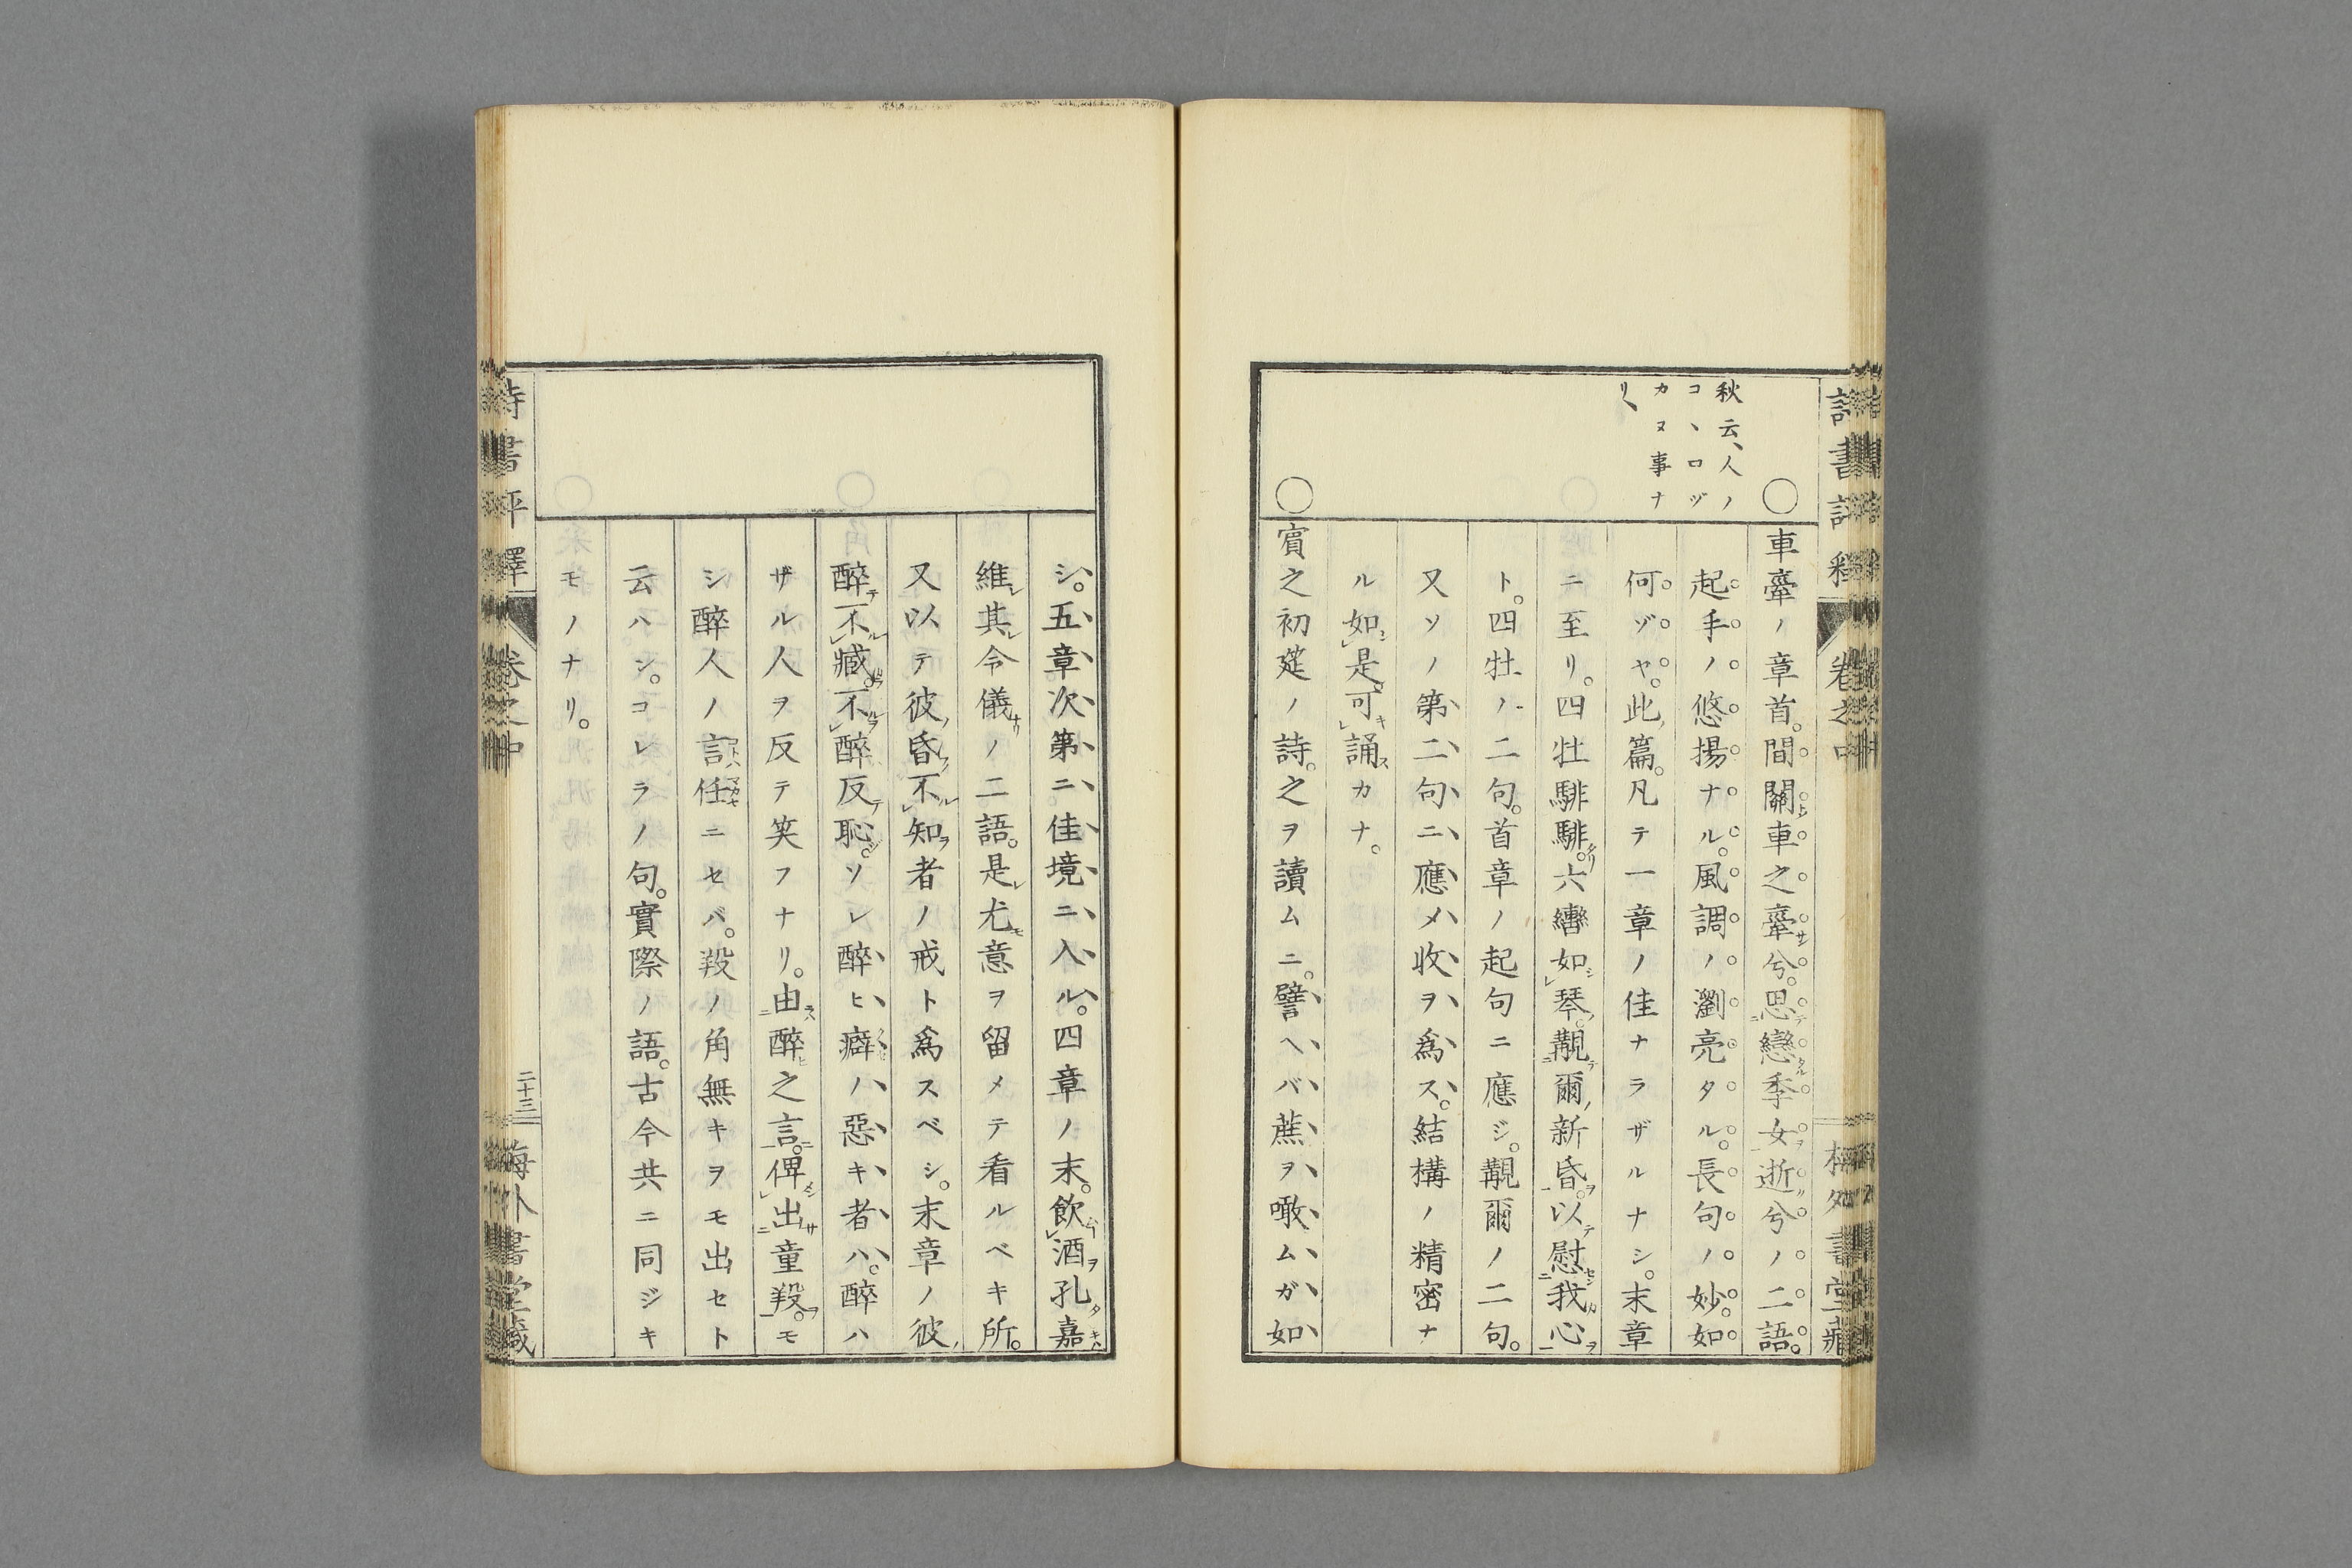 秋云、人ノ
コヽロヅ
カヌ事ナ
リ、
○車舝ノ章首。間關車之舝兮。思孌季女逝兮ノ二語。
起手ノ悠揚ナル。風調ノ瀏亮タル。長句ノ妙。如
何ゾヤ。此篇。凡テ一章ノ佳ナラザルナシ。末章
ニ至リ。四牡騑騑。六轡如琴。覯爾新昏。以慰我心
ト。四牡ノ二句。首章ノ起句ニ應ジ。覯爾ノ二句。
又ソノ第二句ニ應メ收ヲ爲ス。結構ノ精密ナ
ル如是。可誦カナ。
○賓之初筵ノ詩。之ヲ讀ムニ。譬ヘバ蔗ヲ噉ムガ如
シ。五章次第ニ佳境ニ入ル。四章ノ末。飮酒孔嘉
維其令儀ノ二語。是尤意ヲ留メテ看ルベキ所。
又以テ彼昏不知者ノ戒ト爲スベシ。末章ノ彼
醉不臧。不醉反恥。ソレ醉ヒ癖ノ惡キ者ハ。醉ハ
ザル人ヲ反テ笑フナリ。由醉之言。俾出童羖。モ
シ醉人ノ言任ニセバ。羖ノ角無キヲモ出セト
云ハン。コレラノ句。實際ノ語。古今共ニ同ジキ
モノナリ。
詩書評釋
卷之中
二十三
梅外書堂藏